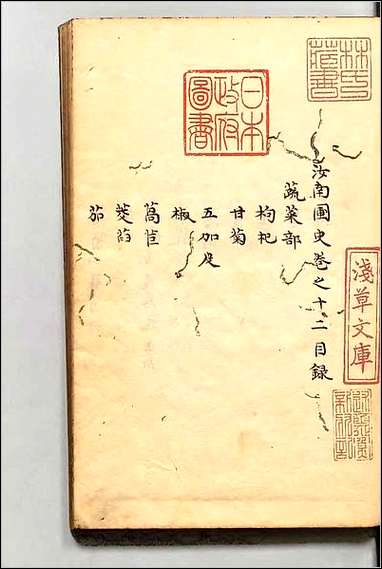 汝南圃史卷之十二目録
蔬菜部
枸杞
甘菊
五加皮
椒
萵苣
茭白
茄
林氏藏書
日本政府圖書
淺草文庫